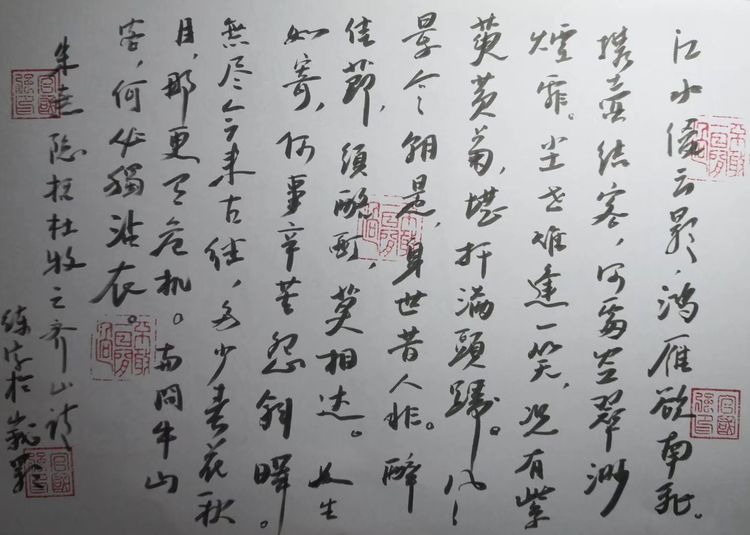 江水侵云影，鸿雁欲南飛。
携壺结客，何處空翠渺
煙霏。尘世难逢一笑，况有紫
萸黄菊，堪插满頭歸。风
景今朝是，身世昔人非。酬
佳節，須酩酊，莫相违。人生
如寄，何事辛苦怨斜暉。
無尽今来古往，多少春花秋
月，那更有危机。与問牛山
客，何必獨沾衣。
朱熹隐括杜牧之齐山诗
练字於